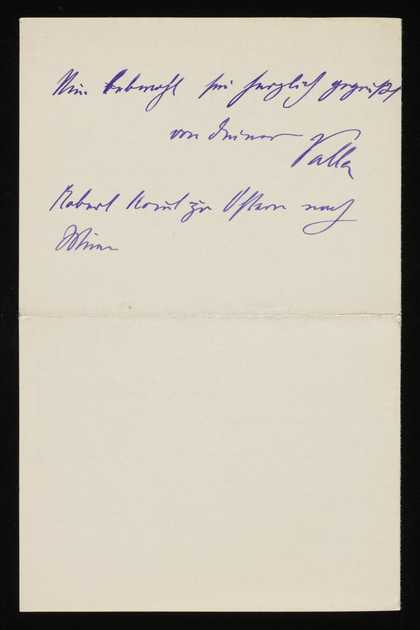 Nun Lebewohl sei herzlich gegrüßt
von deiner Valla
Robert komt zu Ostern nach
Wien